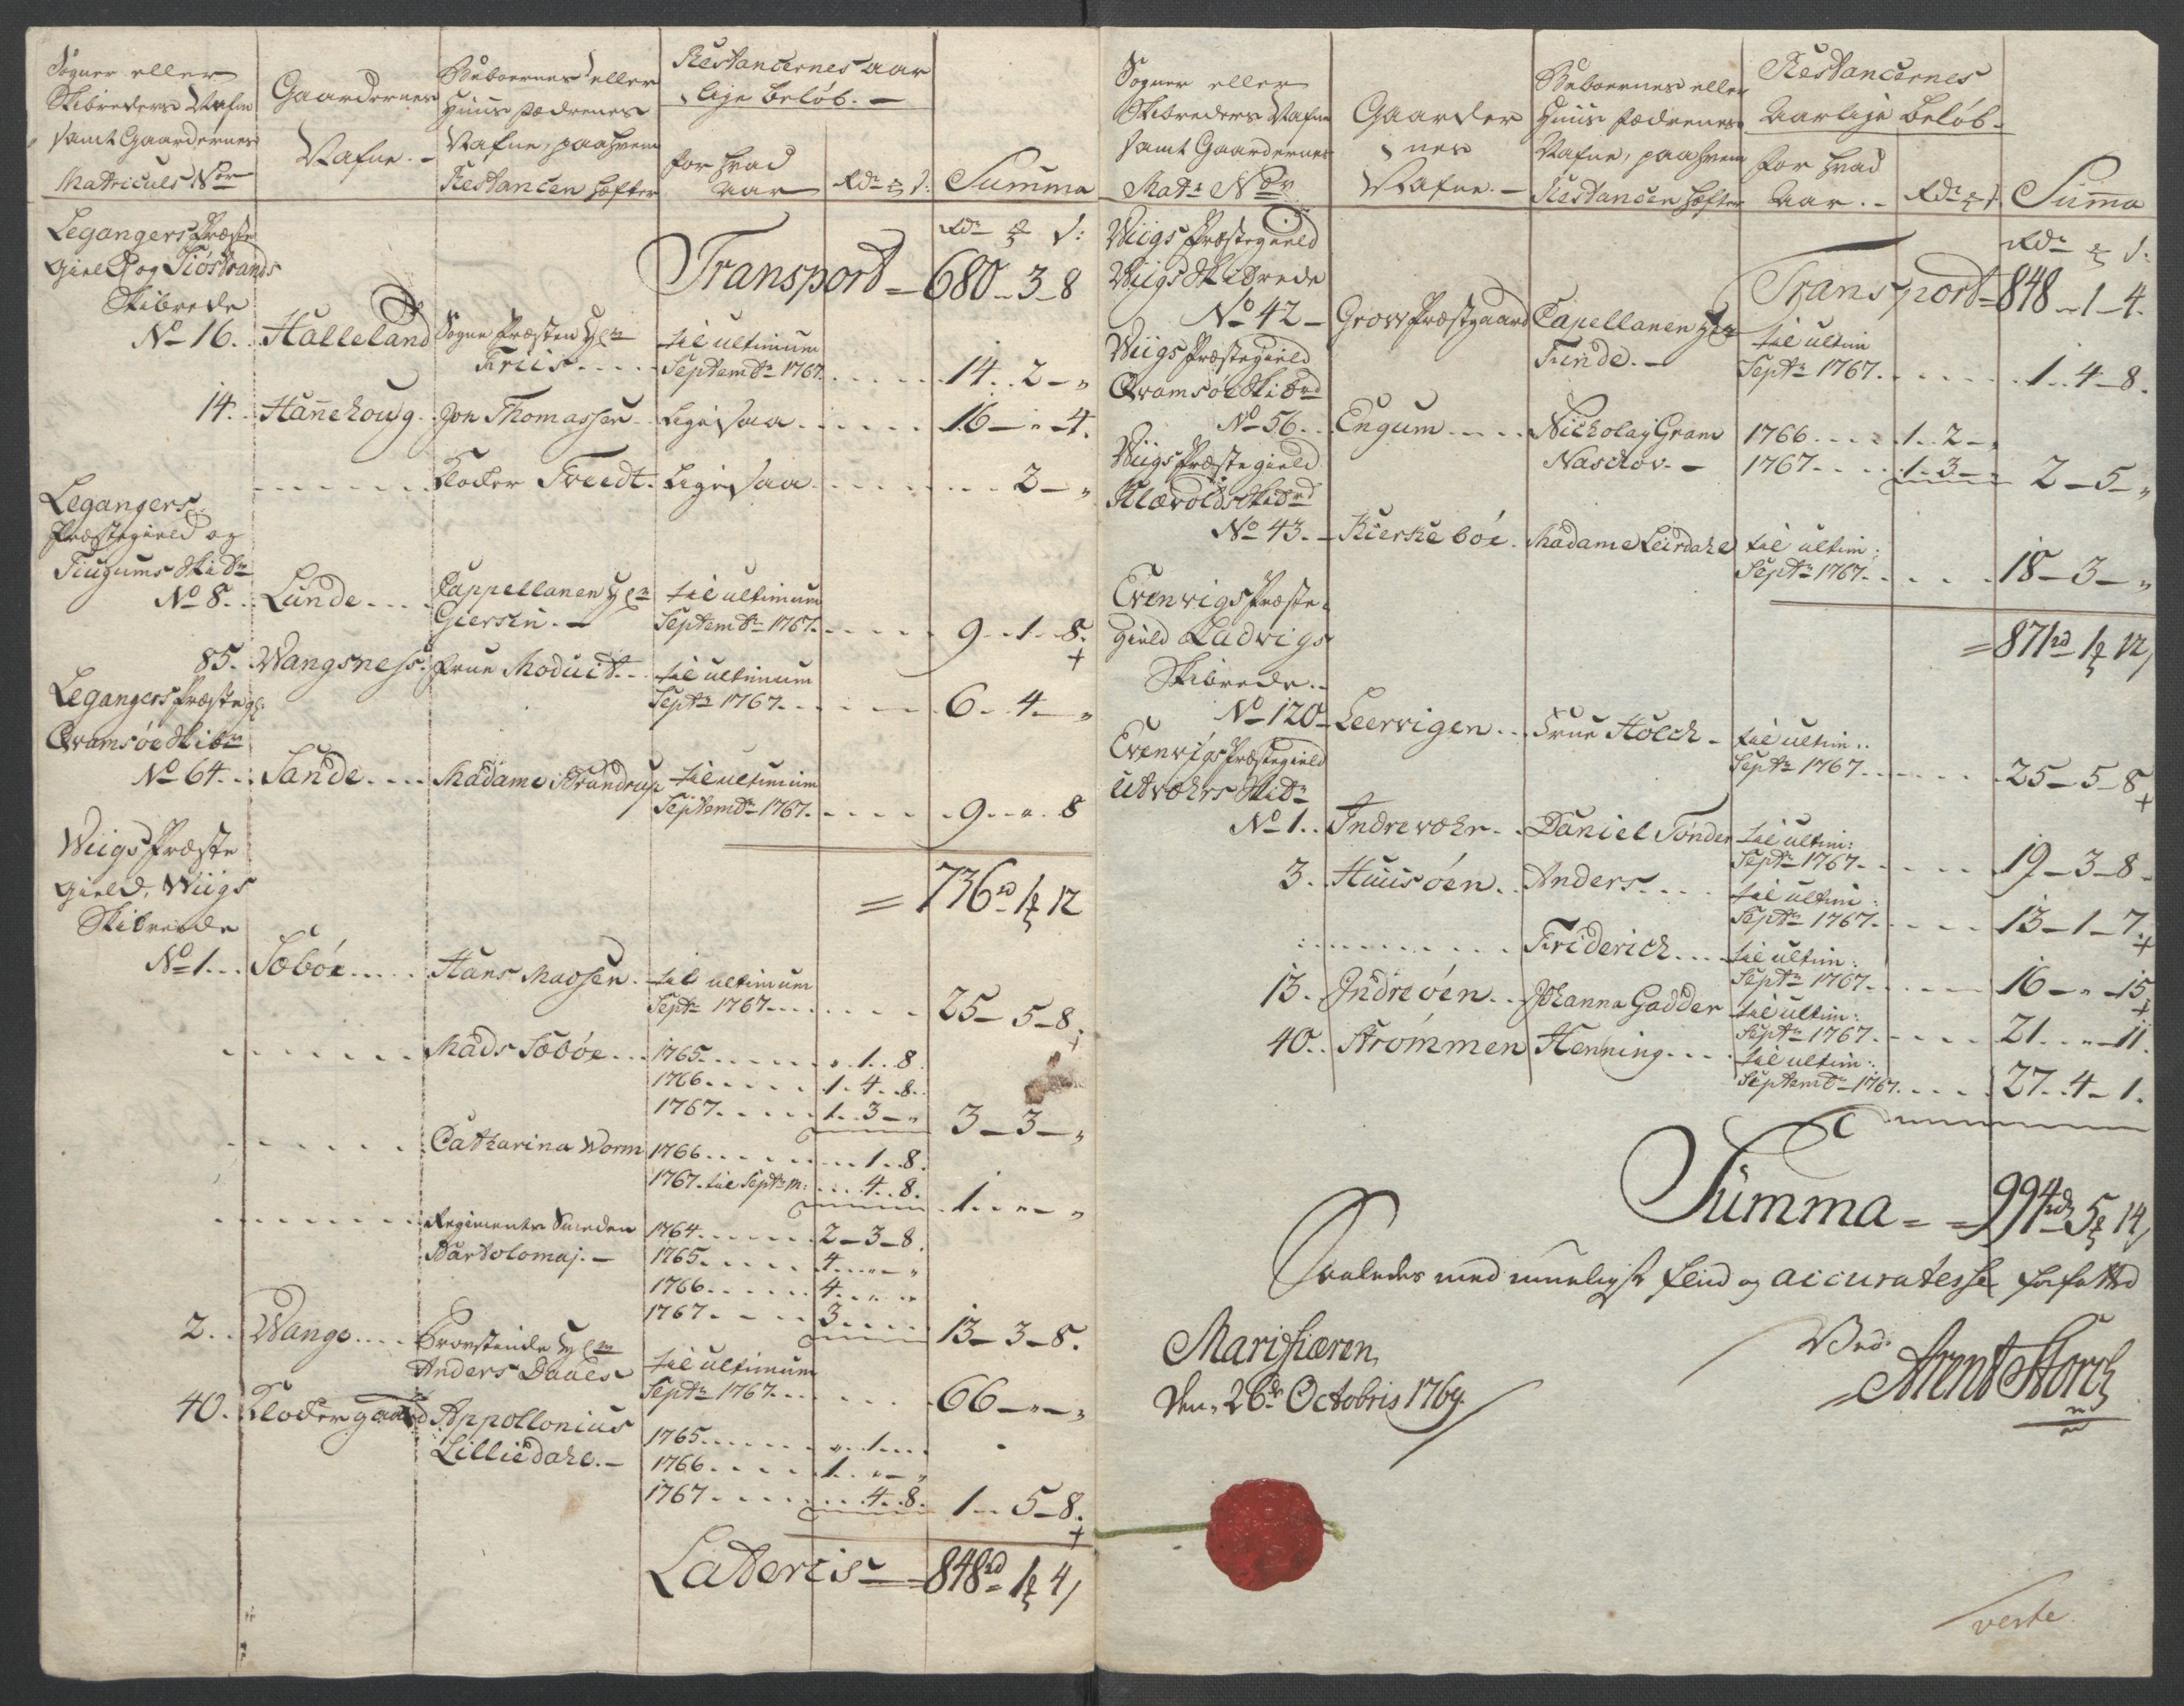 Sogner eller
Skibreders Nafne
samt Gaardernes
Matriculs Nor
Gaardernes
Nafne.
Beboernes eller
Huus Fædrenes
Nafne, paa hvem
Restancen hæfter
Restancernes aar
lige beløb.
for hvad
aar
Rdr ₰ s:
Summa
Legangers Præste
Gield og Siøstrands
Skibrede
Rdr ₰ s:
Transport = 680 - 3 - 8
No 16. Halleland Sogne Præsten Hr
Friis til ultimum
Septembr 1767. 14. 2 - "
14. Hannehoug. Jon Thomassen Ligesaa 16 - " - 4.
Klocker Tvedt. Ligesaa 2 - "
Legangers
Præstegield og
Tiugums Skibr
No 8. Lunde Cappellanen Hr
Giersin. til ultimum
Septembr 1767. 9. 1. 8.
85. Wangsness. Frue Moduidt. til ultimum
Septr 1767. 6. 4 - "
Legangers Præstegl:
Qvamsøe Skibr
No 64. Sande Madame Strandrup til ultimum
Septembr 1767. 9. " . 8
Wiigs Præste
Gield, Wiigs
Skibrede
= 736rd 1 ₰ 12
No 1. Sæbøe Hans Madsen. til ultimum
Septr 1767. 25 - 5 - 8.
Mads Sæbøe 1765. ". 1. 8.
1766. 1. 4. 8.
1767. 1. 3 - " 3 - 3 - "
Catharina Worm 1766. 1. 8.
1767. til Septr m: 4. 8. 1. " - "
Regiments Smeden
Bartolomæj. 1764. 2 - 3 - 8.
1765. 4. " - "
1766. 4. " "
1767 3. 13 - 3 - 8.
2. Wange Provstinde Hr
Anders Daaes til ultimum
Septr 1767. 66 - " - "
40. Klockergaard Appollonius
Lilliedahl. 1765. ". 1.
1766. 1. " - "
1767 4. 8. 1. 5 - 8.
Latercis = 848rd 1 ₰ 4 s
Sogner eller
Skibreders Nafne
samt Gaardernes
Matr Nor
Gaarder
nes
Nafne.
Beboernes eller
Huus Fædrenes
Nafne, paa hvem
Restancen hæfter
Restancernes
Aarlige beløb.
for hvad
Aar.
Rdr ₰ s
Summa
Wiigs Præstegield
Wiigs Skibrede
Rdr ₰ s:
Transport = 848 - 1 - 4.
No 42 - Grow Præstgaard Capellanen Hr
Finde. til ultim
Septr 1767. 1. 4 - 8.
Wiigs Præstegield
Qvamsøe Skibrd
No 56. Engum Nicholay Gram
Naschov. 1766 1. 2 - "
1767 1. 3 - " 2 - 5 - "
Wiigs Præstegield
Klævolds Skibrd
No 43. Kierkebøe. Madame Leirdahl til ultim:
Septr 1767. 18 - 3 - "
= 871rd 1 ₰ 12 s
Evenvigs Præste
Gield Ladvigs
Skibrede.
No 120 Leervigen Frue Holch til ultim:
Septr 1767. 25 - 5 - 8
Evenvigs Præstegield
Utvæhrs Skibr
No 1. Indrevæhr Daniel Tønder til ultim:
Septr 1767. 19 - 3 - 8.
3. Huusøen. Anders til ultim:
Septr 1767. 13 - 1 - 7.
Friderich til ultim:
Septr 1767. 16 - " - 15
13. Indreøen Johanna Gadder til ultim:
Septr 1767. 21. " - 11.
40. Strømmen Henning til ultim:
Septembr 1767. 27. 4 - 1.
Summa = = 994rd 5 ₰ 14 s
Saaledes med mueligst fliid og accuratesse forfatted
Marifiæren,
den, 26de Octobris 1769.
Ved
Arent Storch
verte